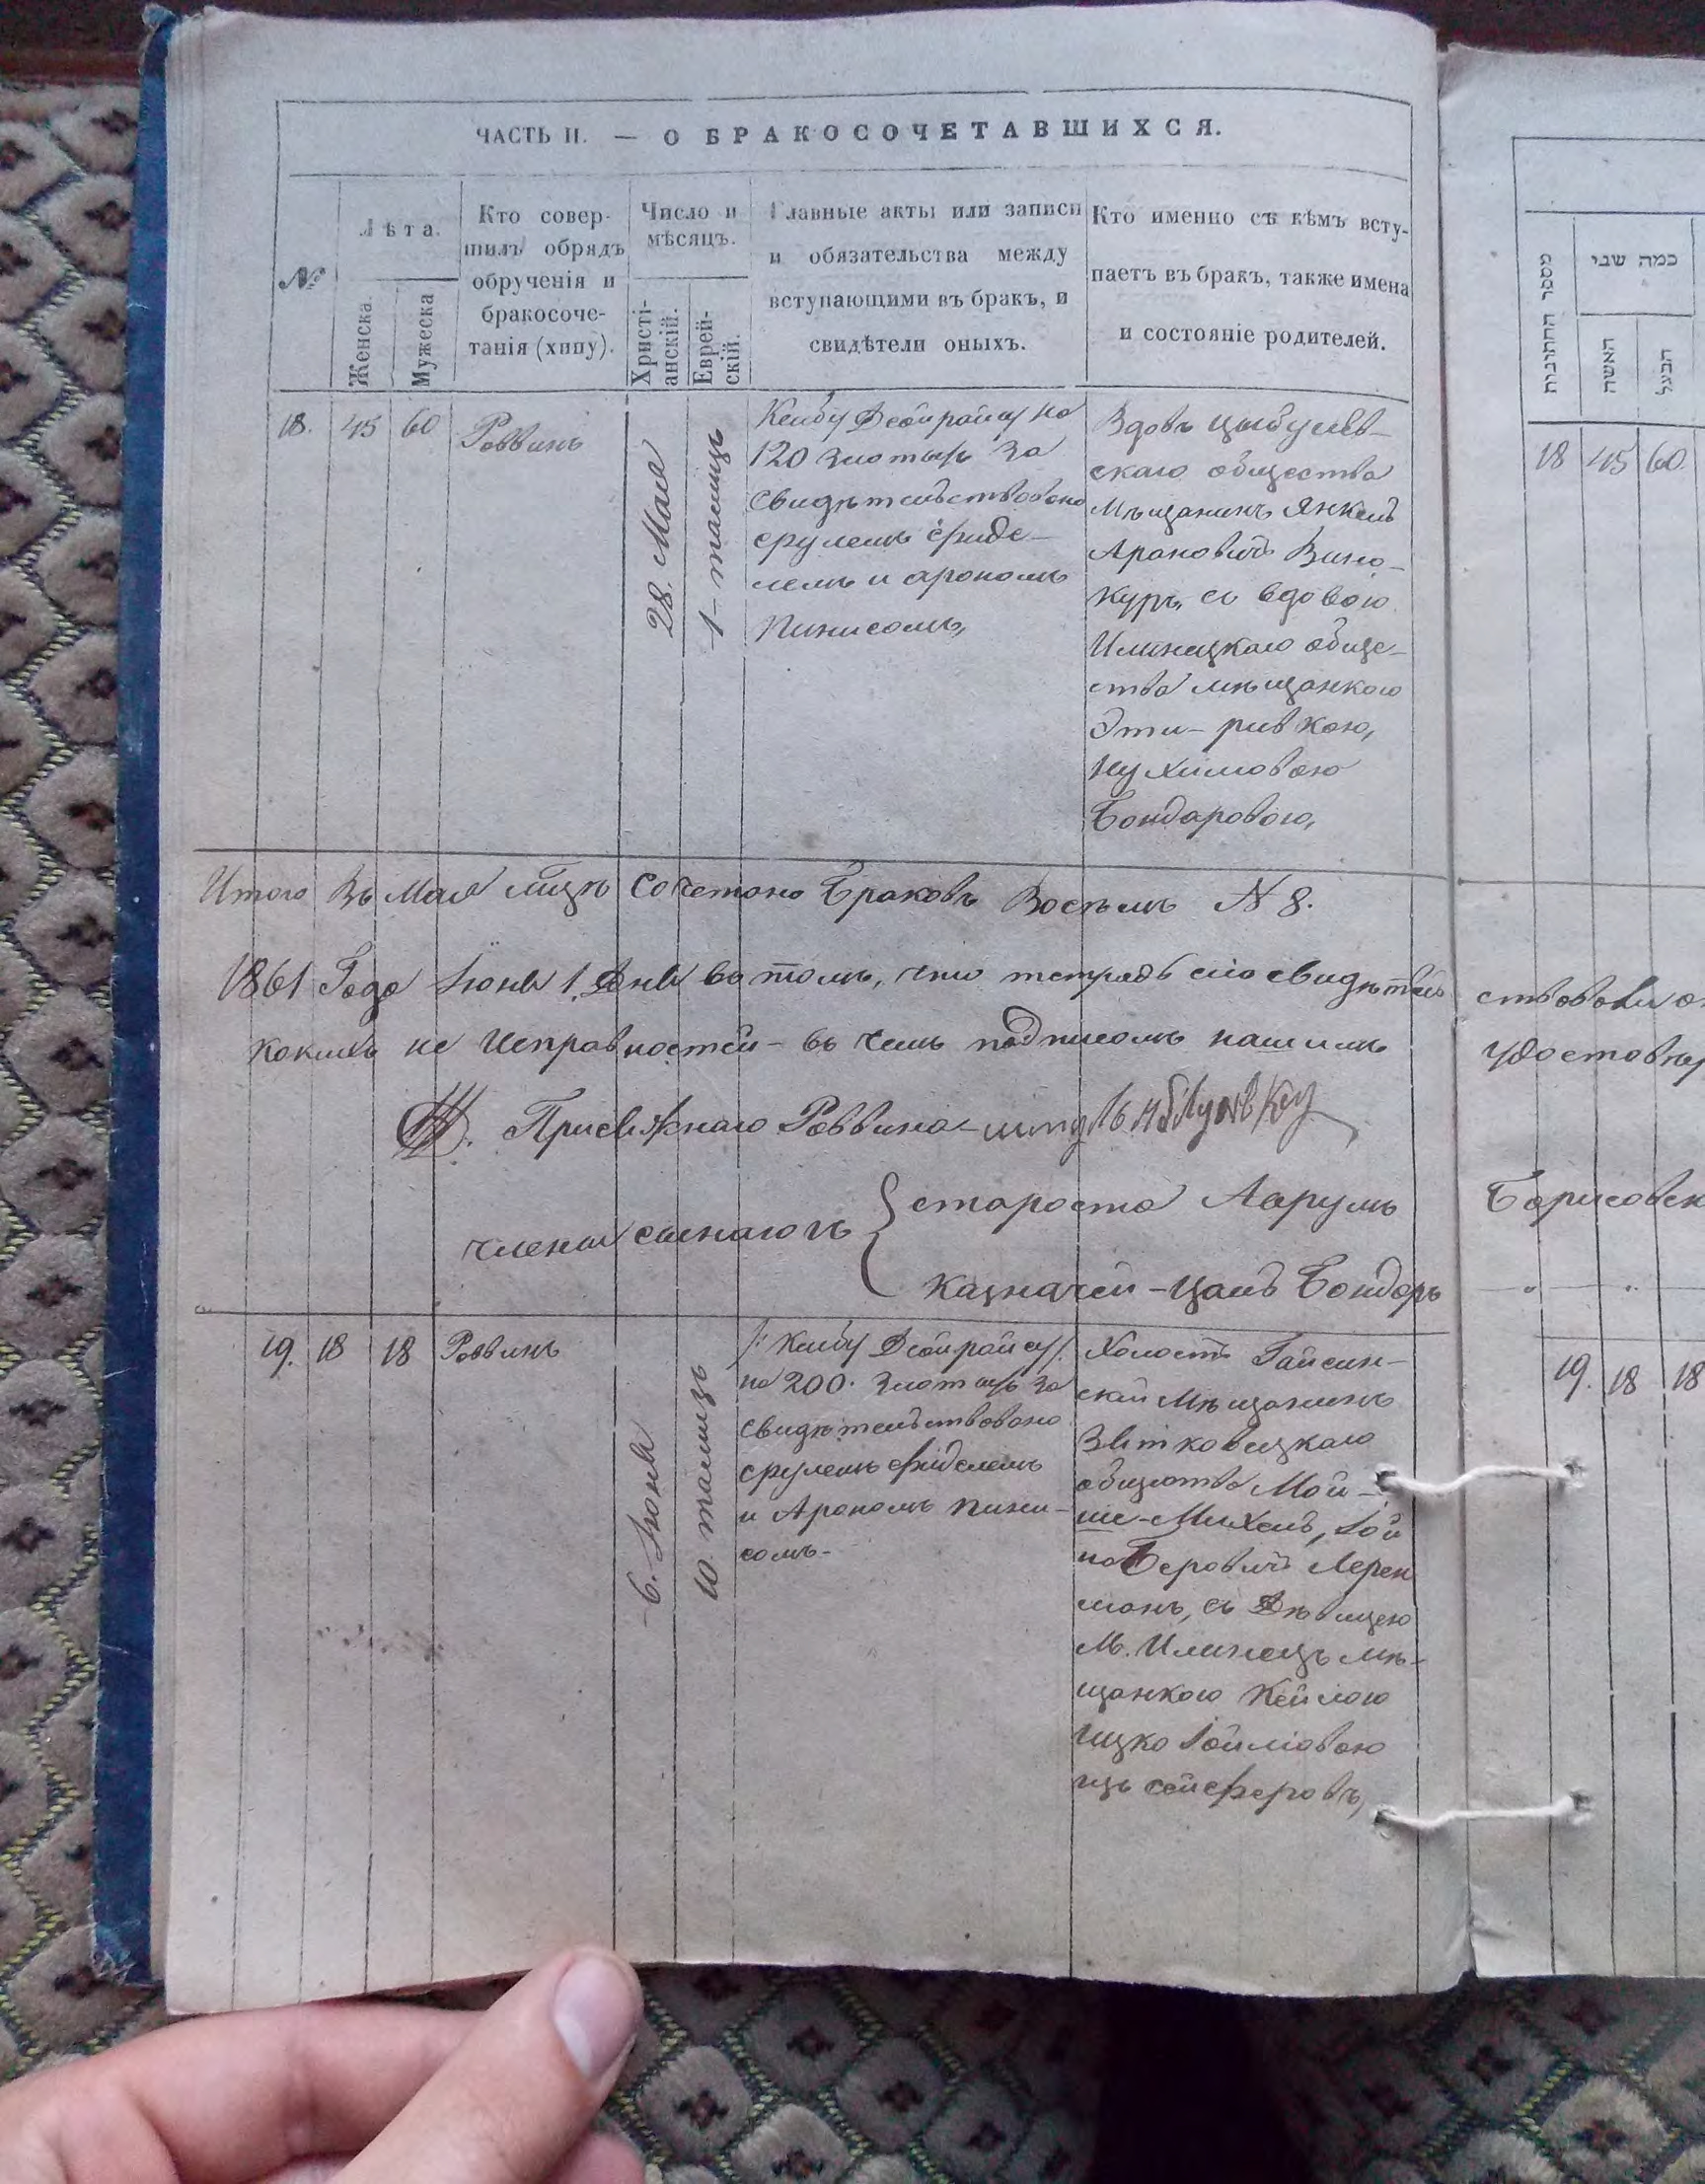 ЧАСТЬ II. — О БРАКОСОЧЕТАВШИХСЯ.
№
Лѣта.
Женска
Мужеска
Кто совер-
шилъ обрядъ
обрученія и
бракосоче-
танія (хипу).
Число и
мѣсяцъ.
Христі-
анскій.
Еврей-
скій.
Главные акты или записи
и обязательства между
вступающими въ бракъ, и
свидѣтели оныхъ.
Кто именно съ кѣмъ всту-
паетъ въ бракъ, также имена
и состояніе родителей.
18.
45
60
Раввинъ
28. Мая
1 таммуза
120 злотыхъ за
свидѣтельствовано
срулемъ фиде-
лемъ и арономъ
Пинисомъ,
Вдовъ Цыбулев-
скаго общества
Мѣщанинъ Янкель
Ароновичъ Вино-
куръ, со вдовою
Илинецкаго обще-
ства мѣщанкою
Эти-ривкою,
Нухимовою
Бондаровою,
Итого Въ Мая мцѣ сочетано Браковъ Восемъ N 8.
1861 Года Іюня 1. Дня въ томъ, что тетрадь сію свидѣтель
ствовали
какихъ не Исправностей - въ чемъ подписомъ нашимъ
удостовѣр
Присяжнаго Раввина
члены синагогъ
староста Аврумъ
Борисовск
казначей - Цаль Бондарь
19.
18
18
Раввинъ
6. Іюня
10 таммуза
на 200. злотыхъ за
свидѣтельствовано
срулемъ фиделемъ
и Арономъ пини-
сомъ-
Холостъ Гайсин-
скій Мѣщанинъ
общества Мой-
ше-Михель, Іой
на Беровичъ Лерен
манъ, съ Дѣвицею
М. Илинецъ мѣ-
щанкою Кейлою
Ицко Іойліовою
изъ сейферовъ,
מספר החתונות
כמה שני
האשה
הבעל
18
45
60
19.
18
18